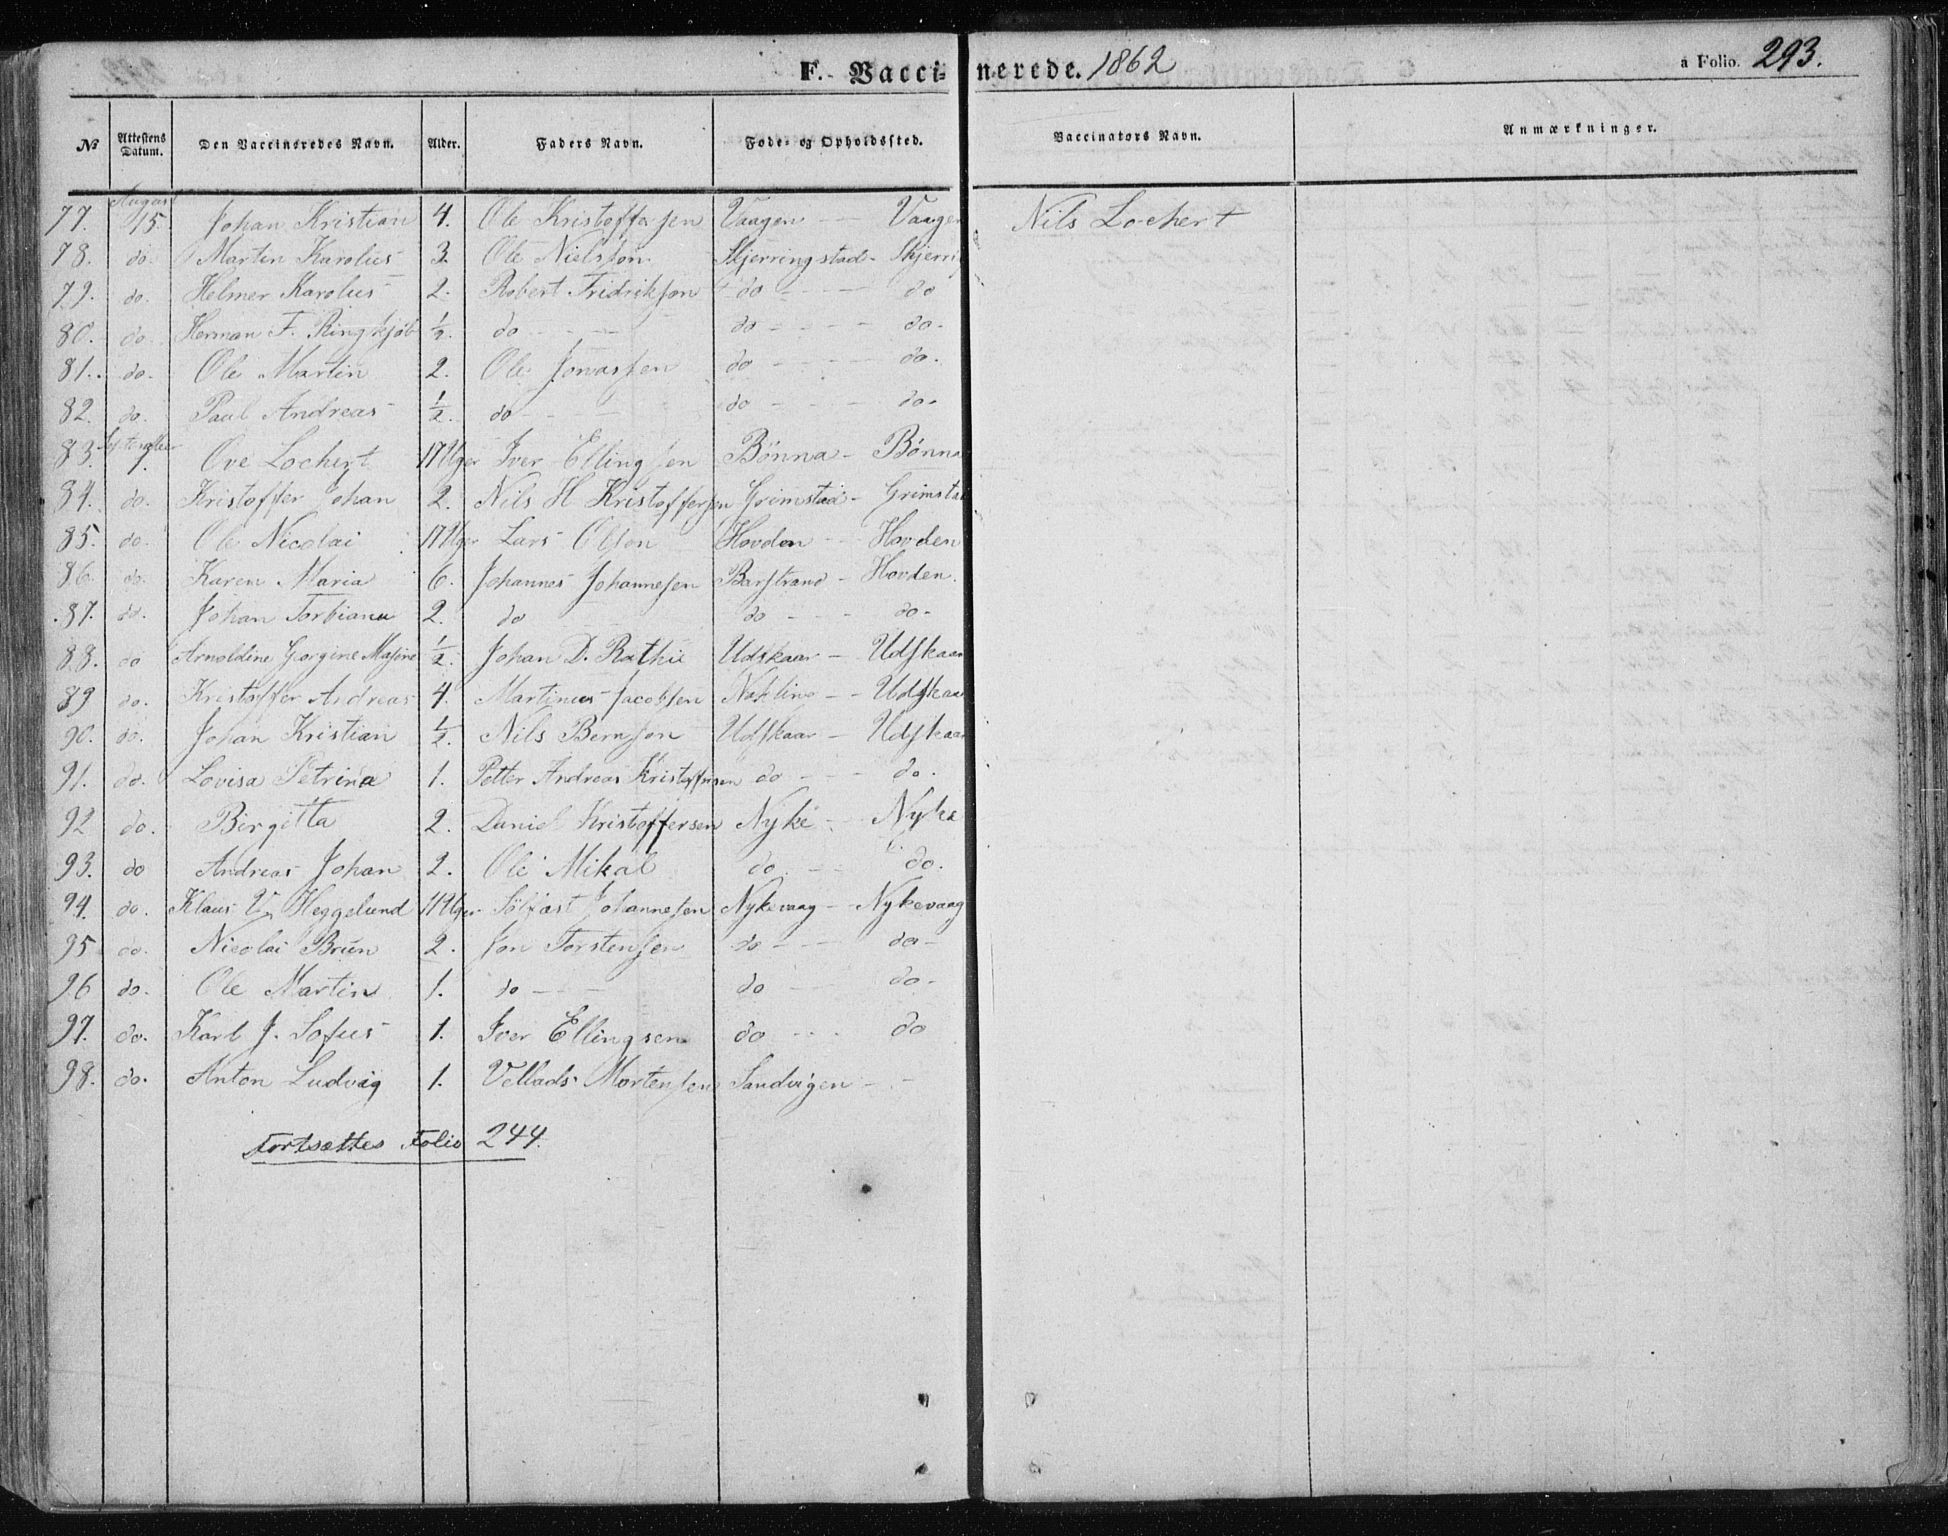 F. Vaccinerede. 1862 a Folio. 293.
№ Attestens Datum. Den Vaccineredes Navn. Alder. Faders Navn. Føde- og Opholdssted. Vaccinators Navn. Anmærkninger.
77. August 15. Johan Kristian 4. Ole Kristoffersen Vaagen - Vaagen Nils Lochert
78. do. Martin Karolius 3. Ole Nielsson Skjerringstad - Skjerri
79. do. Helmer Karolius 2. Robert Fridrikson do - do
80. do. Herman F. Ringkjøb 1/2. do - do - do.
81. do. Ole Martin 2. Ole Jonassen do - do.
82. do. Paul Andreas 1/2. do - do - do.
83. September 7. Ove Lochert 17 Uger Iver Ellingsen Bønna - Bønna
84. do. Kristoffer Johan 2. Nils H Kristoffersen Grimstad - Grimstad
85. do. Ole Nicolai 17 Uger Lars Olson Hovden - Hovden
86. do. Karen Maria 6. Johannes Johannesen Barstrand - Hovden.
87. do. Johan Torbiana 2. do do - do.
88. do Arnoldine Georgine Masine 1/2. Johan D. Rathie Udskaar - Udskaar
89 do. Kristoffer Andreas 4. Martinus Jacobsen - Udskaar
90. do. Johan Kristian 1/2. Nils Bernson Udskaar - Udskaar
91. do. Lovisa Petrina 1. Petter Andreas Kristoffersen do - do.
92 do. Birgitta 2. Daniel Kristoffersen Nyke - Nyke
93. do Andreas Johan 2. Ole Mikal do - do.
94. do. Klaus V. Heggelund 11 Uger Sølfæst Johannesen Nykevaag - Nykevaag
95 do. Nicolai Brun 2. Jon Torstensen do - do -
96 do. Ole Martin 1. do - do do -
97. do. Karl J. Sofus 1. Iver Ellingsen do do
98. do. Anton Ludvig 1. Vellads Mortensen Sandvigen -
Fortsættes Folio 244.